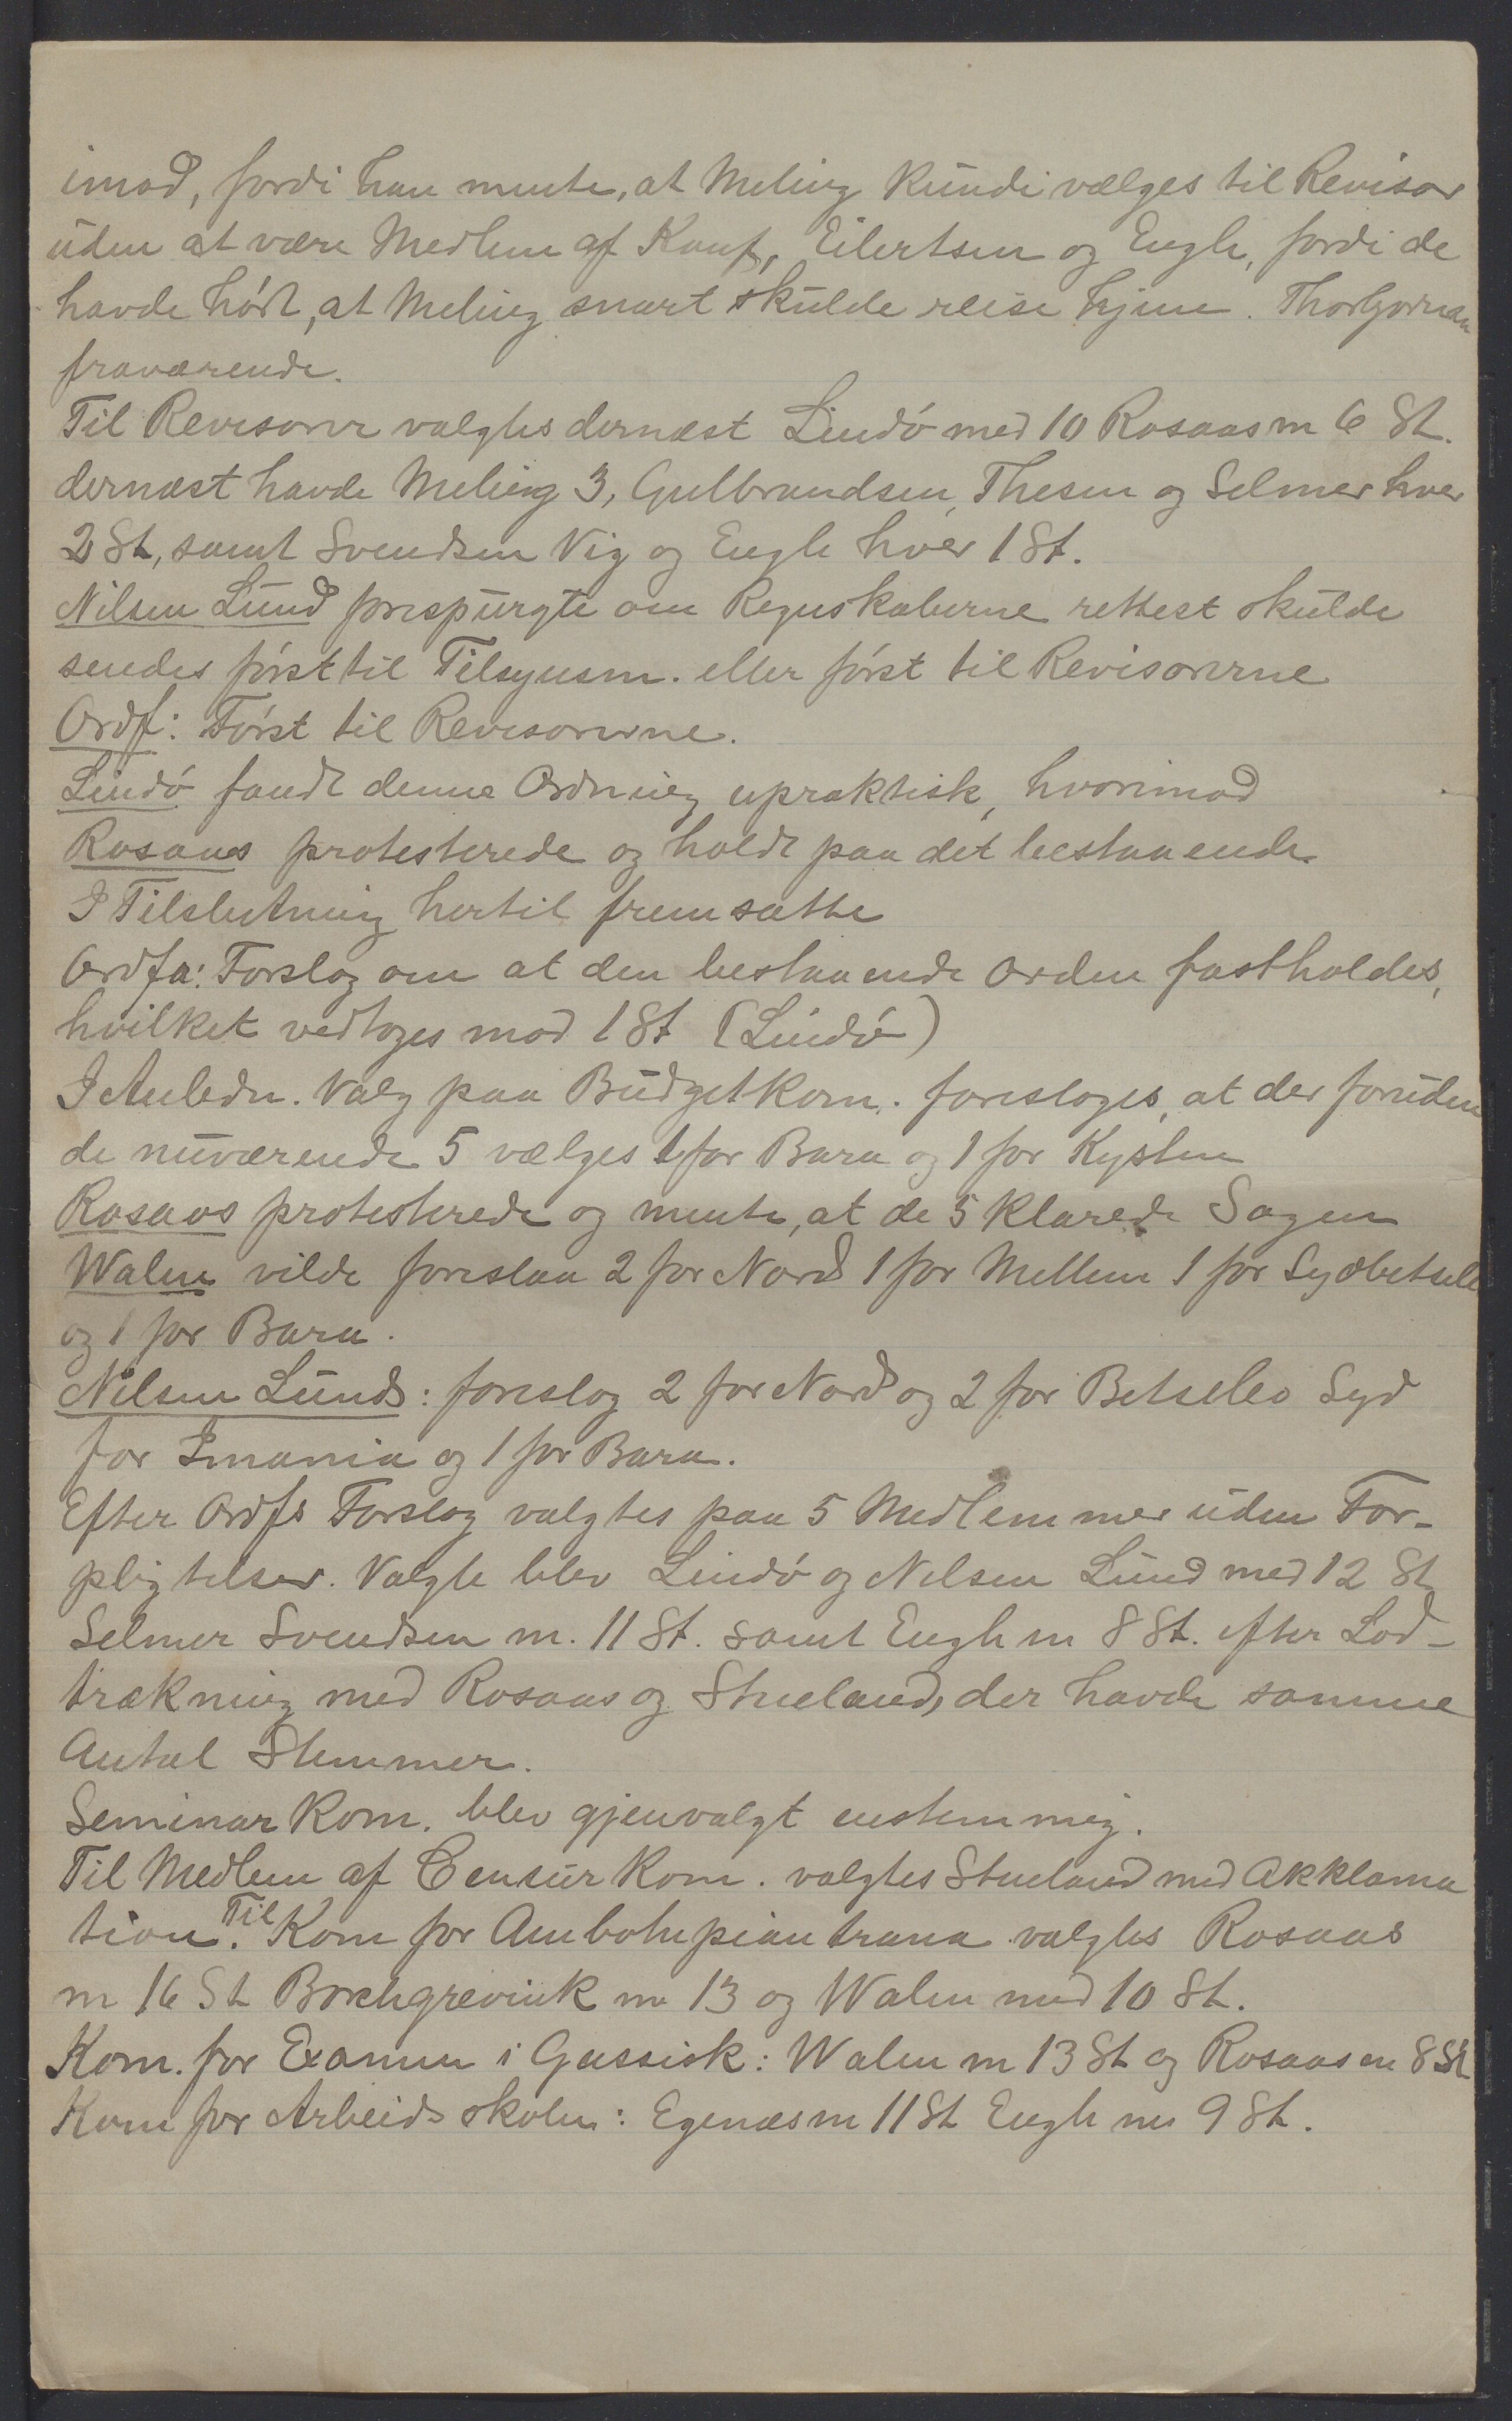 imod, fordi han mente, at Meling kunde vælges til Revisor
uden at være Medlem af Konf, Eilertsen og Engh, fordi de
havde hørt, at Meling snart skulde reise hjem. Thorbjørnsen
fraværende.
Til Revisorer valgtes dernæst Lindø med 10 Rosaas m 6 St.
dernæst havde Meling 3, Gulbrandsen, Thesen og Selmer hver
2 St, samt Svendsen Vig og Engh hver 1 St.
Nilsen Lund forespurgte om Regnskaberne rettest skulde
sendes først til Tilsynsm. eller først til Revisorerne
Ordf: Først til Revisorerne.
Lindø fandt denne Ordning upraktisk, hvorimod
Rosaas protesterede og holdt paa det bestaaende
I Tilslutning hertil fremsatte
Ordfa: Forslag om at den bestaaende Orden fastholdes,
hvilket vedtoges mod 1 St (Lindø)
I Anledn. Valg paa Budgetkom. foresloges, at der foruden
de nuværende 5 vælges 1 for Bara og 1 for Kysten
Rosaas protesterede og mente, at de 5 klarede Sagen
Walen vilde foreslaa 2 for Nord 1 for Mellem 1 for Sydbetsileo
og 1 for Bara.
Nilsen Lunds: foreslog 2 for Nord og 2 for Betsileo Syd
for Imania og 1 for Bara.
Efter Ordfs Forslag valgtes paa 5 Medlemmer uden For-
pligtelser. Valgte blev Lindø og Nilsen Lund med 12 St
Selmer Svendsen m. 11 St. samt Engh m 8 St. efter Lod-
trækning med Rosaas og Stueland, der havde samme
Antal Stemmer.
Seminar Kom. blev gjenvalgt enstemmig.
Til Medlem af Censur Kom. valgtes Stueland med Akklama
tion. Til Kom for Ambohipiantrana valgtes Rosaas
m 16 St Borchgrevink m 13 og Walen med 10 St.
Kom. for Examen i Gassisk: Walen m 13 St og Rosaas m 8 St
Kom for Arbeidsskolen: Egenæs m 11 St Engh m 9 St.